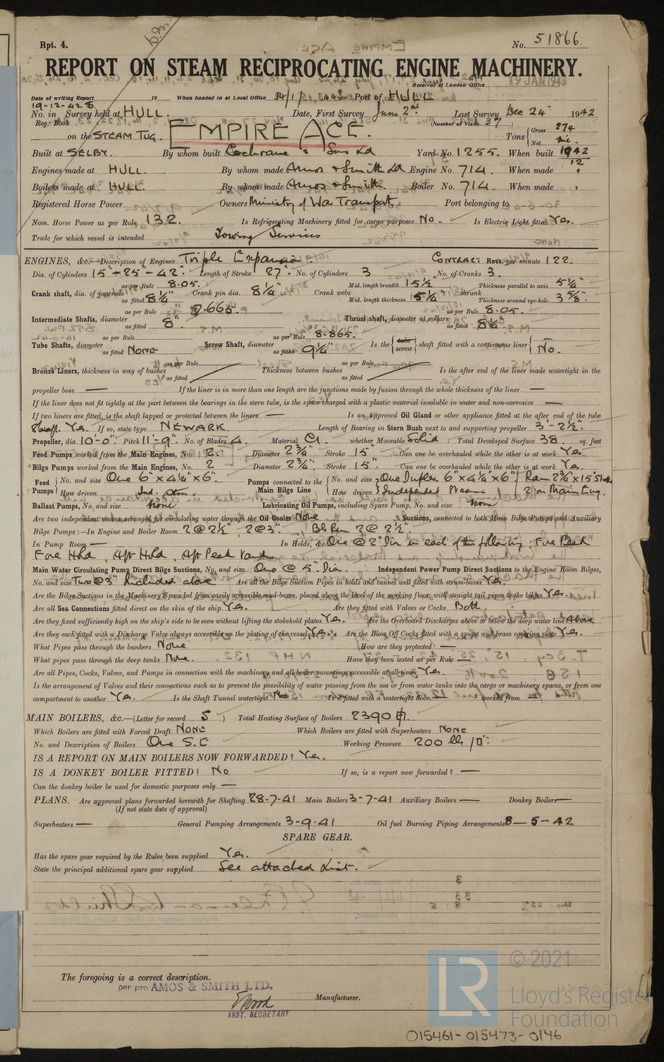 Rpt. 4.
No. 51866.
REPORT ON STEAM RECIPROCATING ENGINE MACHINERY.
Received at London Office
Date of writing Report 19-12-42 19 When handed in at Local Office Port of HULL
No. in Reg. Book Survey held at HULL. Date, First Survey June 2nd Last Survey Dec 24 1942
(Number of Visits 37
on the STEAM TUG. EMPIRE ACE. Tons Gross 274 Net nil.
Built at SELBY. By whom built Cochrane & Sons Ld Yard No. 1255. When built 1942
Engines made at HULL. By whom made Amos & Smith Ld Engine No. 714. When made "
Boilers made at HULL. By whom made Amos & Smith Boiler No. 714. When made "
Registered Horse Power Owners Ministry of War Transport. Port belonging to
Nom. Horse Power as per Rule 132. Is Refrigerating Machinery fitted for cargo purposes No. Is Electric Light fitted Yes.
Trade for which vessel is intended Towing Services
ENGINES, &c.—Description of Engines Triple Expansion CONTRACT Revs. per minute 122.
Dia. of Cylinders 15"-25"-42" Length of Stroke 27" No. of Cylinders 3 No. of Cranks 3.
Crank shaft, dia. of journals as per Rule 8.05. as fitted 8¼" Crank pin dia. 8¼" Crank webs Mid. length breadth 15½" Mid. length thickness 5¼" shrunk Thickness parallel to axis 5¼" Thickness around eye-hole 3⅝"
Intermediate Shafts, diameter as per Rule 7.665. as fitted 8" Thrust shaft, diameter at collars as per Rule 8.05. as fitted 8¼"
Tube Shafts, diameter as per Rule as fitted NONE Screw Shaft, diameter as per Rule 8.865. as fitted 9¼" Is the tube screw shaft fitted with a continuous liner No.
Bronze Liners, thickness in way of bushes as per Rule as fitted Thickness between bushes as per Rule as fitted Is the after end of the liner made watertight in the
propeller boss — If the liner is in more than one length are the junctions made by fusion through the whole thickness of the liner —
If the liner does not fit tightly at the part between the bearings in the stern tube, is the space charged with a plastic material insoluble in water and non-corrosive —
If two liners are fitted, is the shaft lapped or protected between the liners — Is an approved Oil Gland or other appliance fitted at the after end of the tube
shaft Yes. If so, state type NEWARK. Length of Bearing in Stern Bush next to and supporting propeller 3'-2½"
Propeller, dia. 10'-0" Pitch 11'-9" No. of Blades 4. Material CI whether Moveable Solid Total Developed Surface 38 sq. feet
Feed Pumps worked from the Main Engines, No. 2 Diameter 2¾" Stroke 15" Can one be overhauled while the other is at work Yes.
Bilge Pumps worked from the Main Engines, No. 2 Diameter 2¾" Stroke 15" Can one be overhauled while the other is at work Yes.
Feed Pumps No. and size One 6"x4¼"x6" How driven Pumps connected to the Main Bilge Line No. and size One Duplex 6"x4¼"x6" Ram 2¾"x15" How driven Independent Steam
Ballast Pumps, No. and size None Lubricating Oil Pumps, including Spare Pump, No. and size None
Are two independent means arranged for circulating water through the Oil Cooler None Suctions, connected to both Main Bilge Pumps and Auxiliary
Bilge Pumps:—In Engine and Boiler Room 2 @ 2½" 2 @ 3"
In Pump Room — In Holds, &c. One @ 2" Dia in each of the following. Fore Peak
Fore Hold, Aft Hold, Aft Peak
Main Water Circulating Pump Direct Bilge Suctions, No. and size One @ 5" dia. Independent Power Pump Direct Suctions to the Engine Room Bilges,
No. and size Two @ 3" Included above Are all the Bilge Suction Pipes in holds and tunnel well fitted with strum-boxes Yes.
Are the Bilge Suctions in the Machinery Spaces led from easily accessible mud boxes, placed above the level of the working floor, with straight tail pipes to the bilges Yes.
Are all Sea Connections fitted direct on the skin of the ship Yes. Are they fitted with Valves or Cocks Both
Are they fixed sufficiently high on the ship's side to be seen without lifting the stokehold plates Yes. Are the Overboard Discharges above or below the deep water line Above
Are they each fitted with a Discharge Valve always accessible on the plating of the vessel Yes. Are the Blow Off Cocks fitted with a spigot and brass covering plate Yes.
What Pipes pass through the bunkers None How are they protected —
What pipes pass through the deep tanks None. Have they been tested as per Rule —
Are all Pipes, Cocks, Valves, and Pumps in connection with the machinery and all boiler mountings accessible at all times Yes.
Is the arrangement of Valves and their connections such as to prevent the possibility of water passing from the sea or from water tanks into the cargo or machinery spaces, or from one
compartment to another Yes. Is the Shaft Tunnel watertight Is it fitted with a watertight door worked from
MAIN BOILERS, &c.—(Letter for record S ) Total Heating Surface of Boilers 2390
Which Boilers are fitted with Forced Draft NONE Which Boilers are fitted with Superheaters NONE
No. and Description of Boilers One S.E Working Pressure 200 lb/□"
IS A REPORT ON MAIN BOILERS NOW FORWARDED? Yes.
IS A DONKEY BOILER FITTED? No If so, is a report now forwarded? —
Can the donkey boiler be used for domestic purposes only —
PLANS. Are approved plans forwarded herewith for Shafting 28-7-41 Main Boilers 3-7-41 Auxiliary Boilers — Donkey Boilers —
(If not state date of approval)
Superheaters — General Pumping Arrangements 3-9-41 Oil fuel Burning Piping Arrangements 8-5-42
SPARE GEAR.
Has the spare gear required by the Rules been supplied Yes.
State the principal additional spare gear supplied See attached List.
The foregoing is a correct description.
per pro AMOS & SMITH LTD.
Manufacturer.
ASST. SECRETARY
© 2021
LR
Lloyd's Register
Foundation
015461-015473-0146